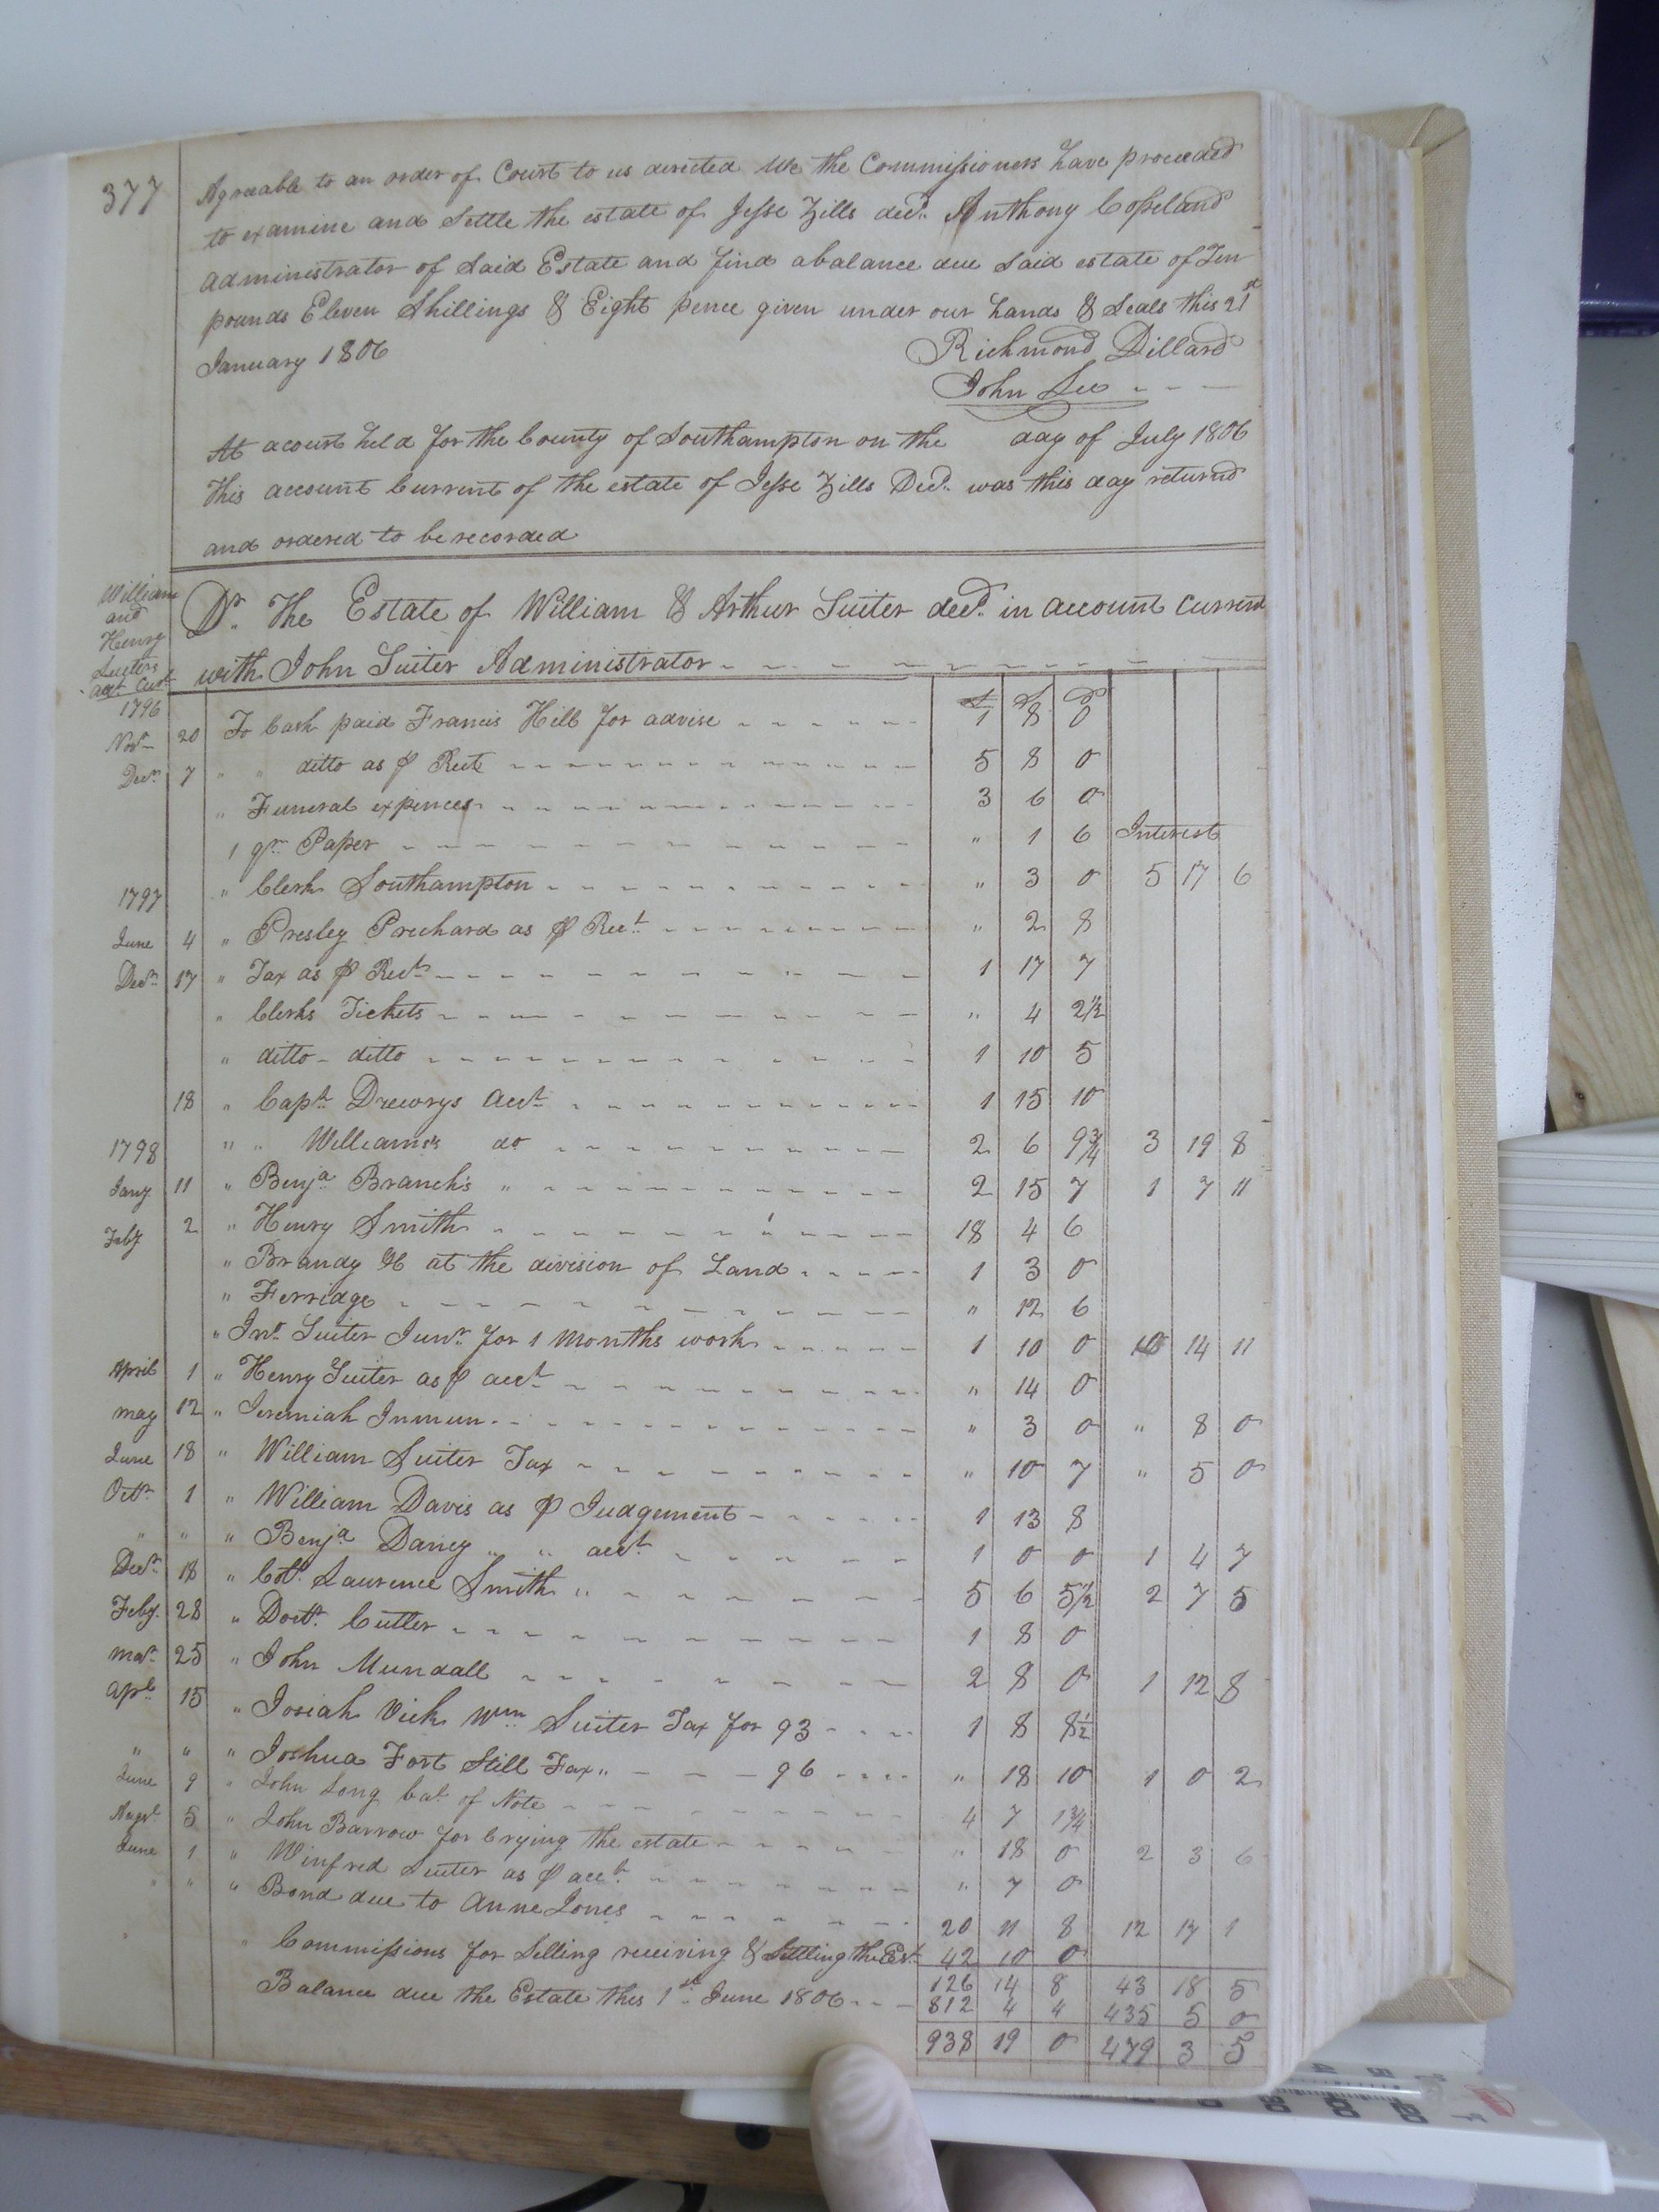 377
Agreeable to an order of Court to us directed We the Commissioners have proceeded
to examine and Settle the estate of Jesse Zills decd. Anthony Copeland
administrator of Said Estate and find a balance due Said estate of Ten
pounds Eleven Shillings & Eight pence given under our hands & Seals this 21st
January 1806
Richmond Dillard
John Lee
At a court held for the County of Southampton on the day of July 1806
This account Current of the estate of Jesse Zills Decd. was this day returnd
and ordered to be recorded
William
and
Henry
Suiters
acct. Curt.
Dr. The Estate of William & Arthur Suiter decd. in account Current
with John Suiter Administrator
£ S D
1796
Novr 20 To Cash paid Francis Hill for advise 1 8 0
Decr. 7 " " ditto as ⅌ Rect 5 8 0
" Funeral expinces 3 6 0
1 qr. Paper " 1 6 Interest
1797 " Clerk Southampton " 3 0 5 17 6
June 4 " Presley Prechard as ⅌ Rect. " 2 8
Decr. 17 " Tax as ⅌ Rect. 1 17 7
" Clerks Tickets " 4 2½
" ditto - ditto 1 10 5
18 " Capt. Drewrys acct. 1 15 10
1798 " " Williams's do 2 6 9¾ 3 19 8
Jany. 11 " Benja. Branch's " 2 15 7 1 7 11
Feby 2 " Henry Smith 18 4 6
" Brandy &c at the division of Land 1 3 0
" Ferridge " 12 6
" Jno. Suiter Junr. for 1 months work 1 10 0 10 14 11
April 1 " Henry Suiter as ⅌ acct. " 14 0
may 12 " Jeremiah Inmun " 3 0 " 8 0
June 18 " William Suiter Tax " 10 7 " 5 0
Octr. 1 " William Davis as ⅌ Judgement 1 13 8
" " " Benja. Dancy " " acct. 1 0 0 1 4 7
Decr. 18 " Colo. Laurence Smith " 5 6 5½ 2 7 5
Feby. 28 " Doctr. Cutler 1 8 0
mar. 25 " John Mundall 2 8 0 1 12 8
apl. 15 " Josiah Vick Wm Suiter Tax for 93 1 8 8½
" " " Joshua Fort Still Tax " 96 " 18 10 1 0 2
June 9 " John Long bal. of Note 4 7 1¾
Augt. 5 " John Barrow for Crying the estate " 18 0 2 3 6
June 1 " Winfred Suiter as ⅌ acct. " 7 0
" " " Bond due to Anne Jones 20 11 8 12 17 1
" Commissions for Selling receiving & Settling the Est. 42 10 0
126 14 8 43 18 5
Balance due the Estate this 1st. June 1806 812 4 4 435 5 0
938 19 0 479 3 5